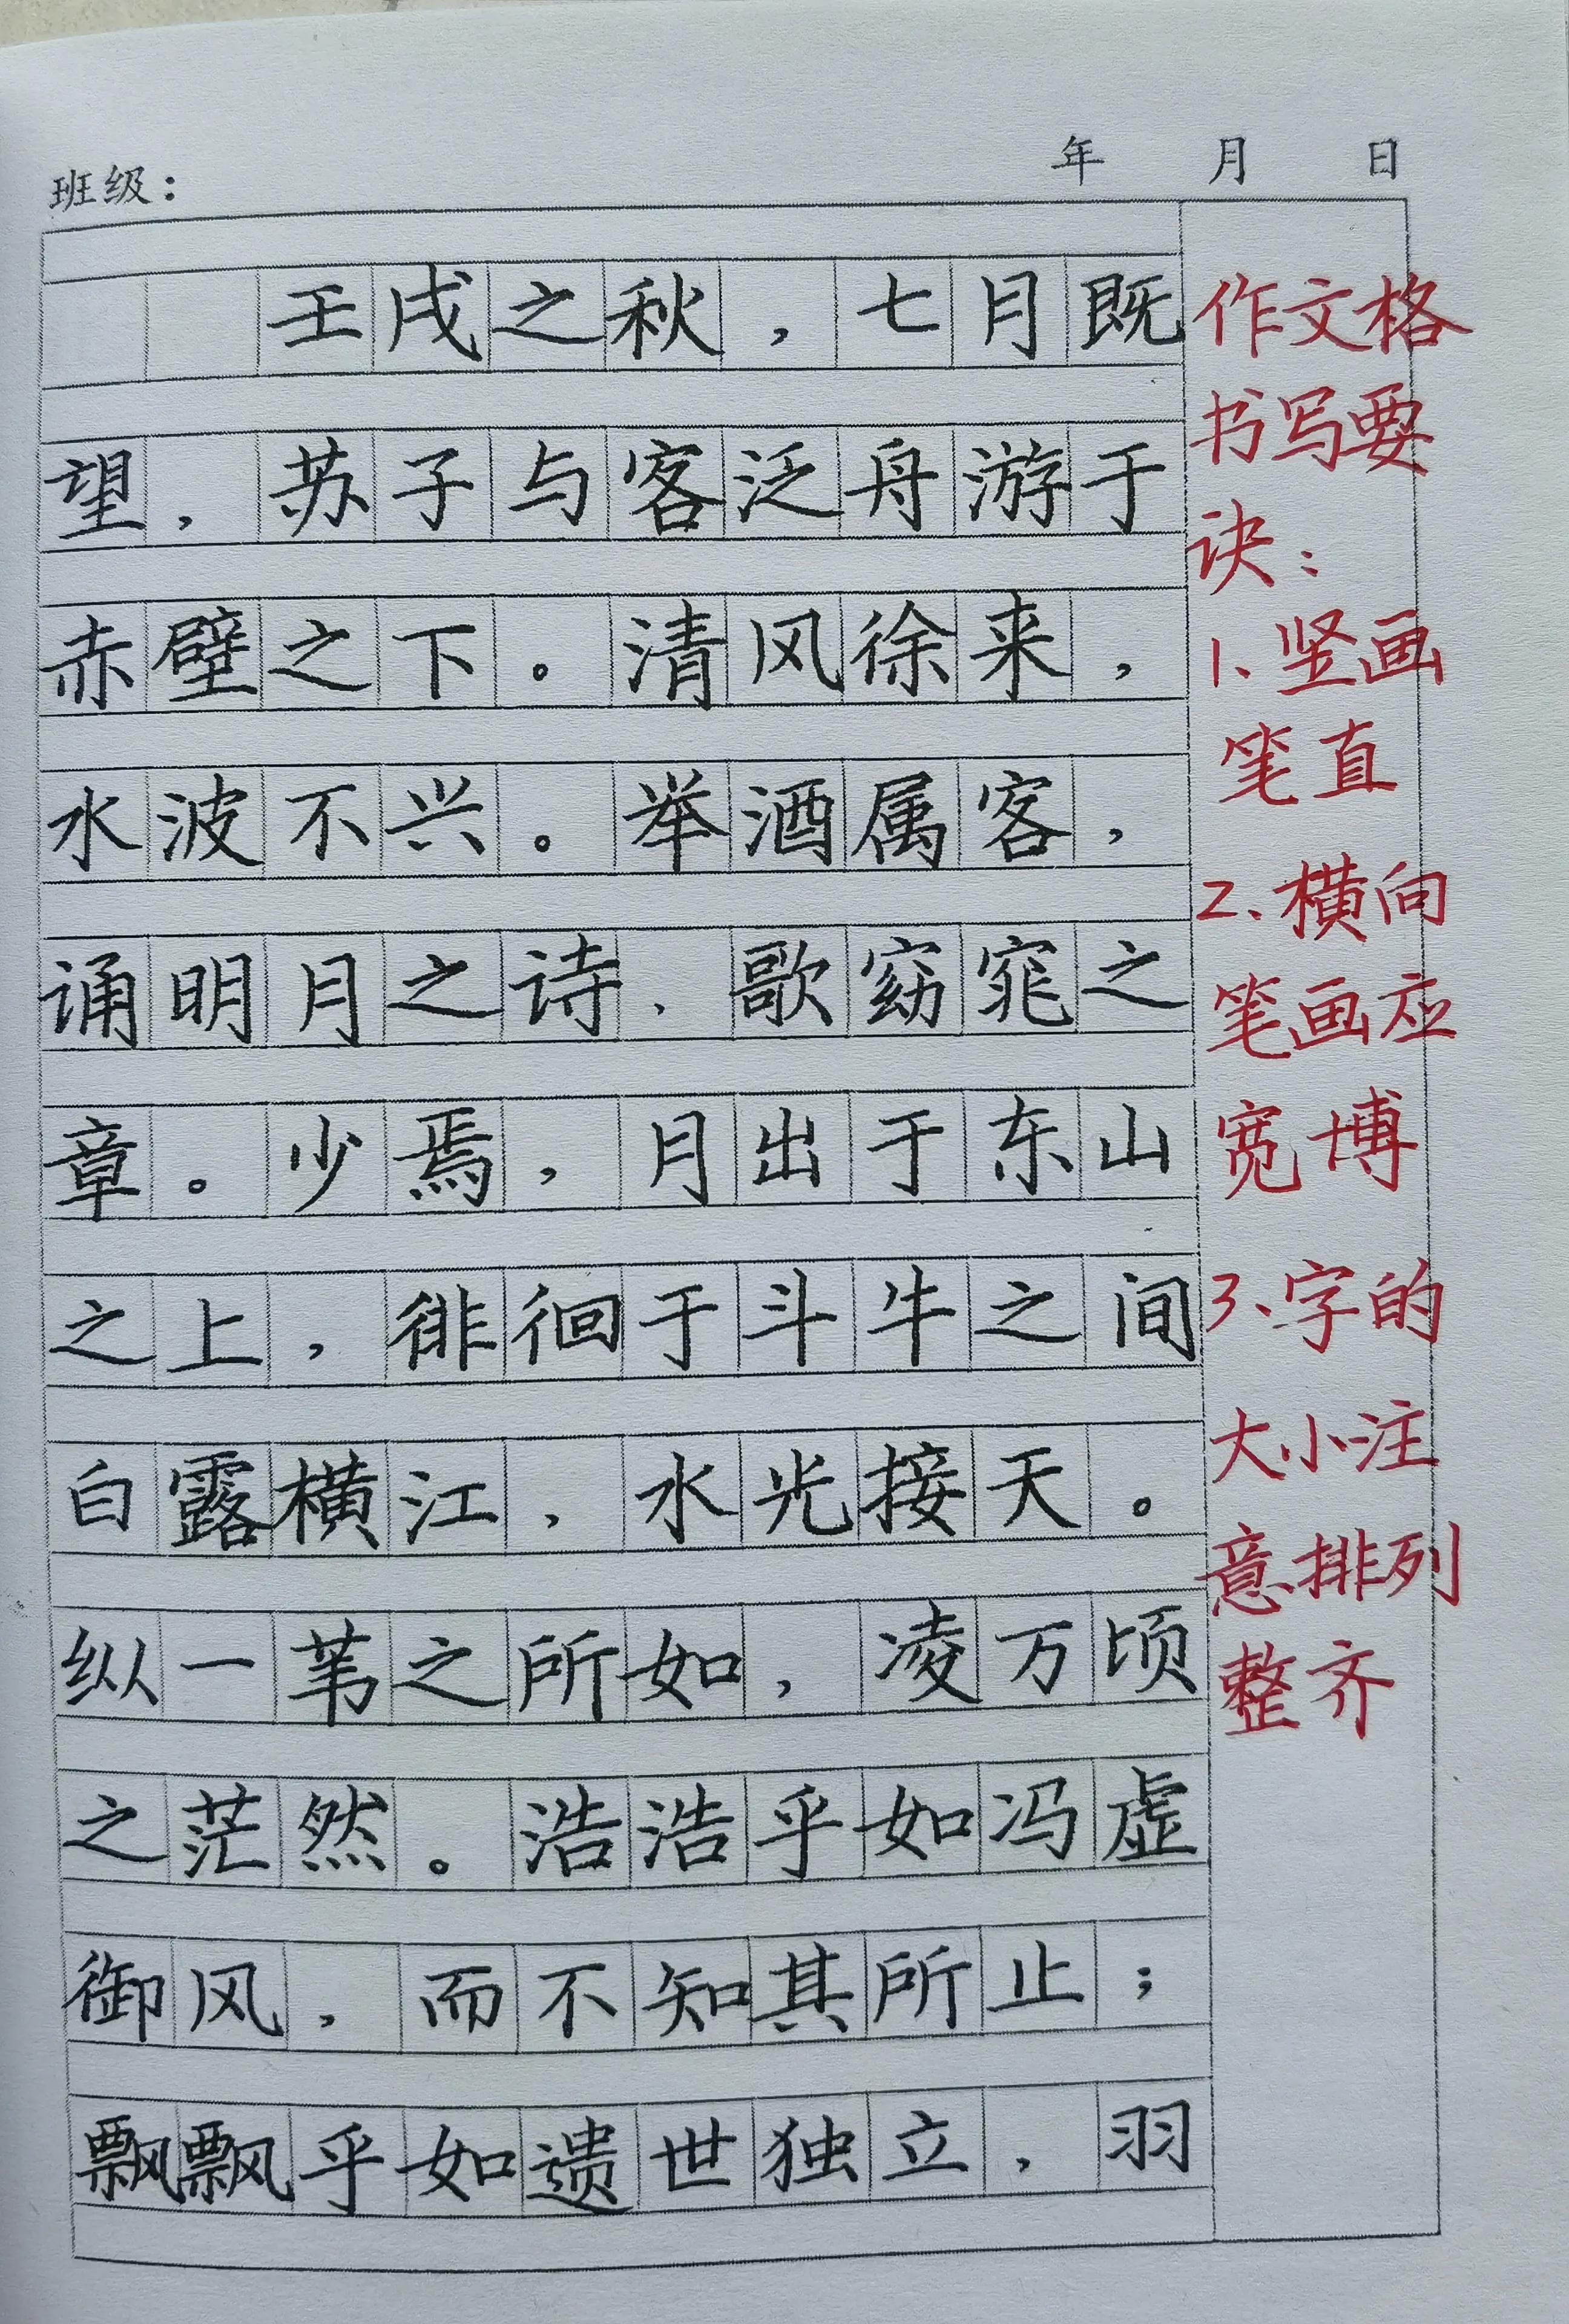 班级： 年 月 日
壬戌之秋，七月既
望，苏子与客泛舟游于
赤壁之下。清风徐来，
水波不兴。举酒属客，
诵明月之诗，歌窈窕之
章。少焉，月出于东山
之上，徘徊于斗牛之间
白露横江，水光接天。
纵一苇之所如，凌万顷
之茫然。浩浩乎如冯虚
御风，而不知其所止；
飘飘乎如遗世独立，羽
作文格
书写要
诀：
1、竖画
笔直
2、横向
笔画应
宽博
3、字的
大小注
意排列
整齐